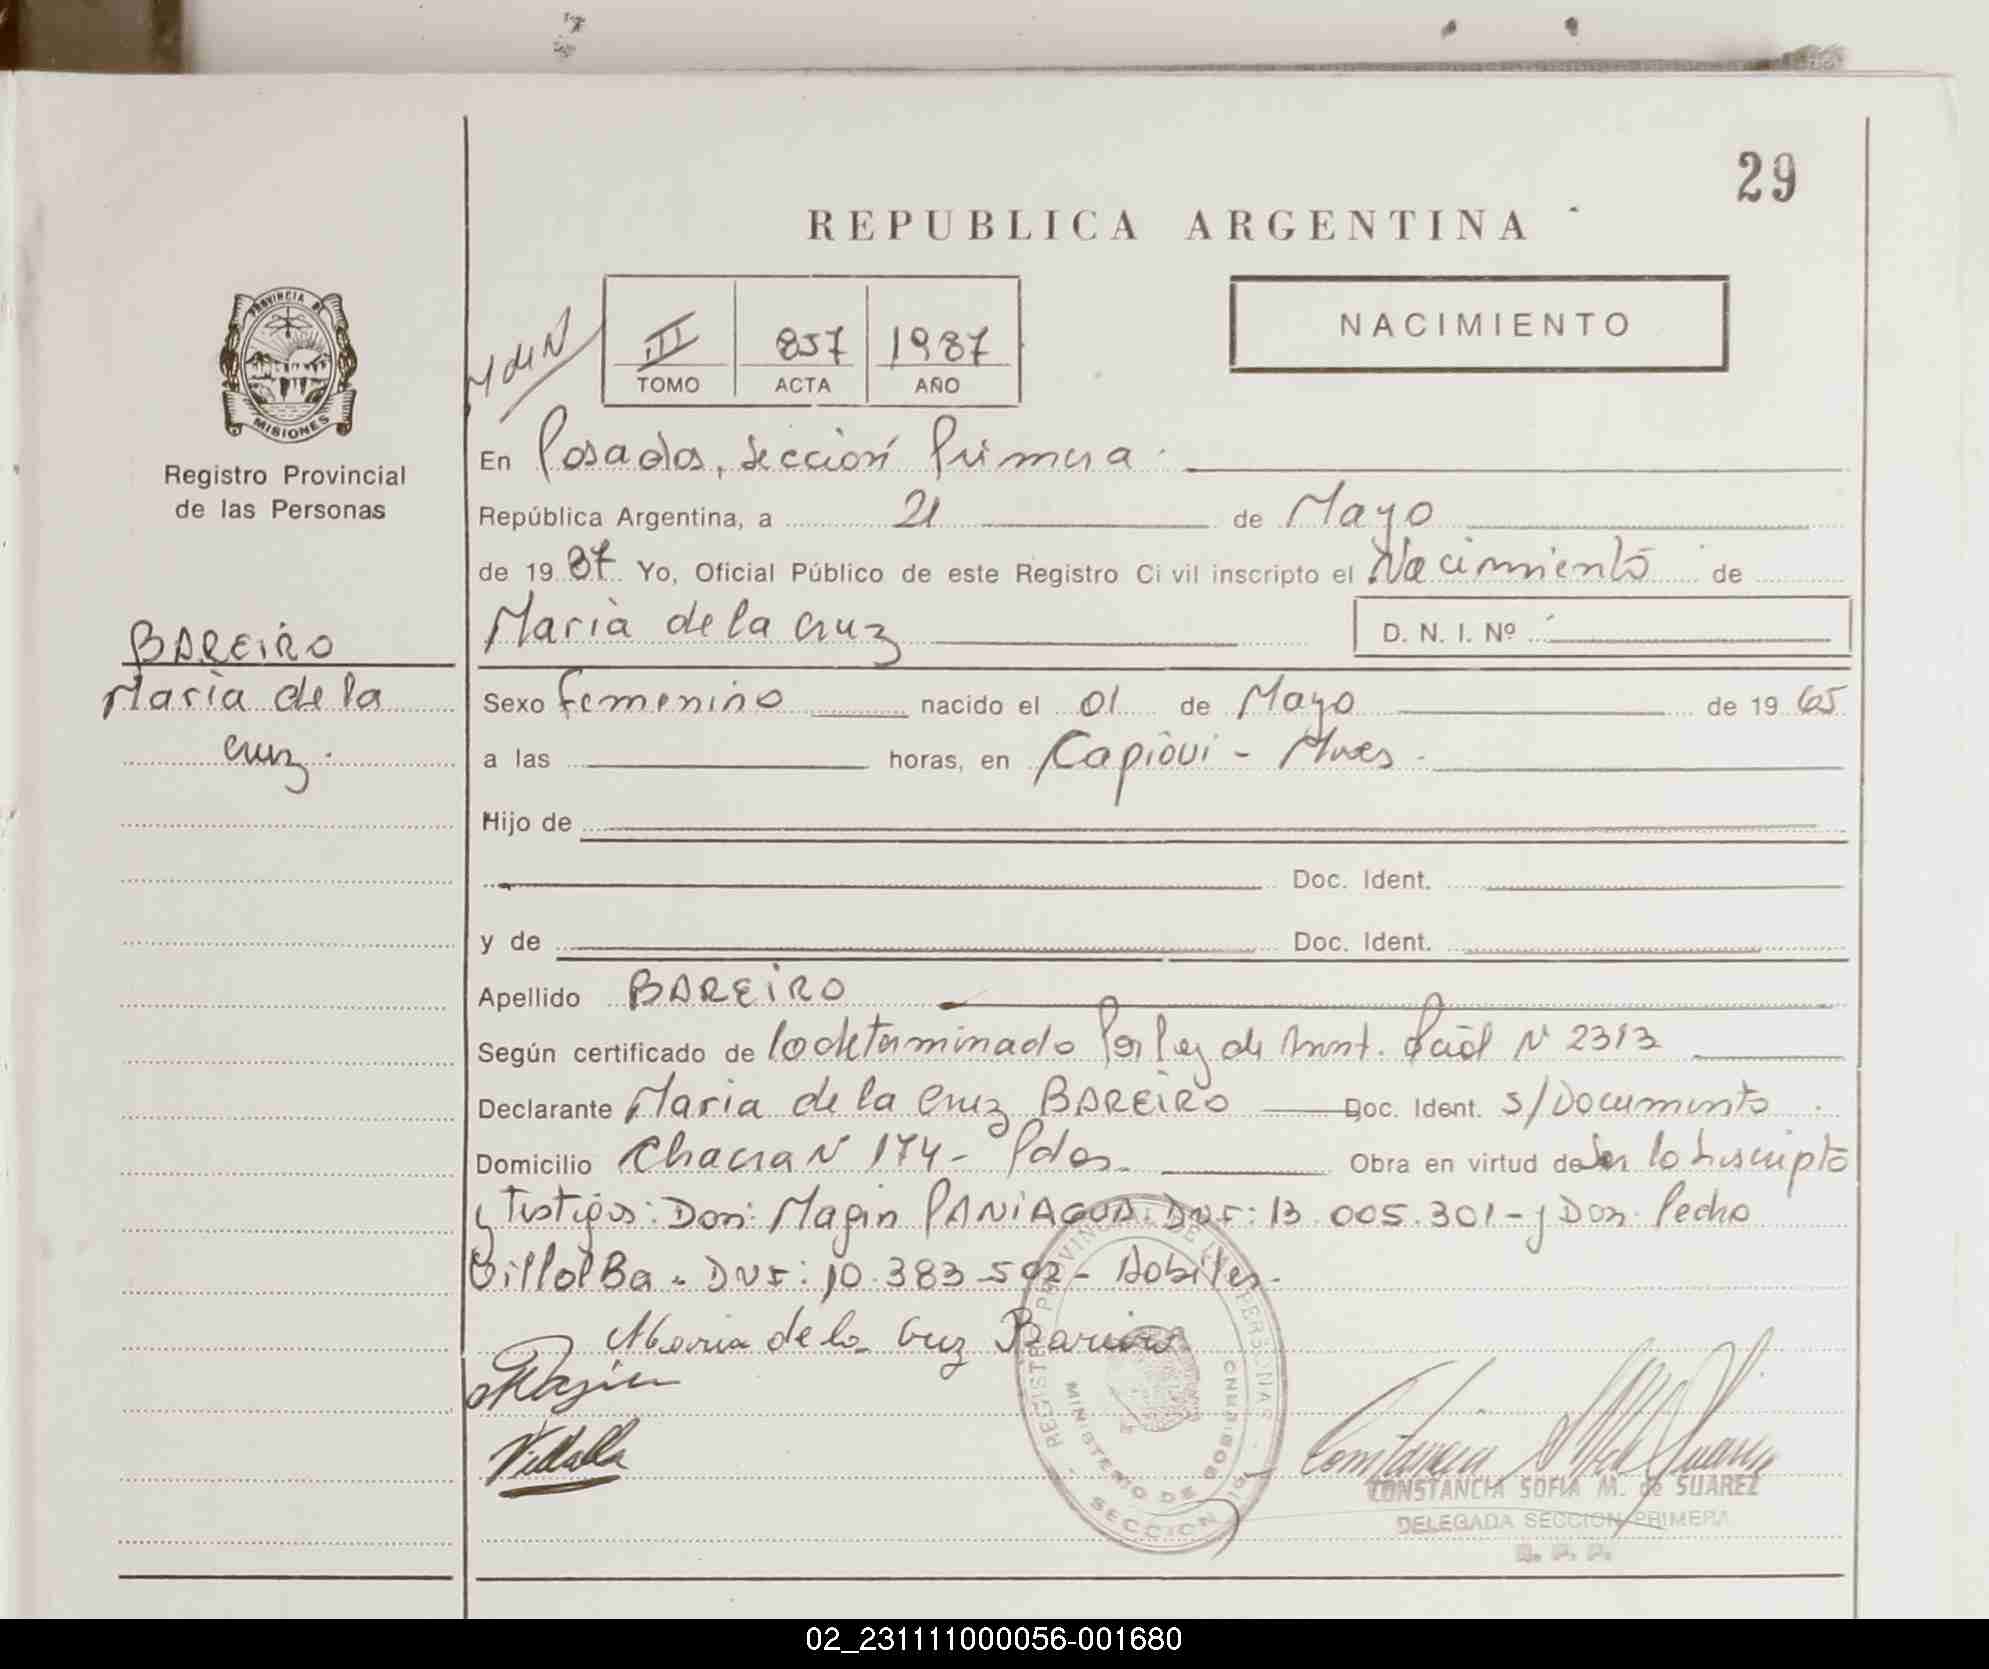 29
REPUBLICA ARGENTINA
PROVINCIA DE
MISIONES
Registro Provincial
de las Personas
III 857 1987
TOMO ACTA AÑO
NACIMIENTO
En Posadas, Sección Primera
República Argentina, a 21 de Mayo
de 19 87 Yo, Oficial Público de este Registro Civil inscripto el Nacimiento de
Maria de la Cruz D. N. I. Nº
BAREIRO
Maria de la
Cruz.
Sexo Femenino nacido el 01 de Mayo de 19 65
a las horas, en Capiovi - Mnes.
Hijo de
Doc. Ident.
y de Doc. Ident.
Apellido BAREIRO
Según certificado de lo determinado Por Ley de N 2313
Declarante Maria de la Cruz BAREIRO Doc. Ident. S/Documento.
Domicilio Chacra N 174 - Pdas. Obra en virtud de Ser la Inscripta
y Testigos: Don: Magin PANIAGUA. DNI: 13.005.301 - y Don. Pedro
VillalBa. DNI: 10.383.502 - Habiles.
Maria de la Cruz Bareiro
Magin
Villalba
REGISTRO PROVINCIAL DE LAS PERSONAS
MINISTERIO DE GOBIERNO
SECCION
CONSTANCIA SOFIA M. de SUAREZ
DELEGADA SECCION PRIMERA
R. P. P.
02_231111000056-001680